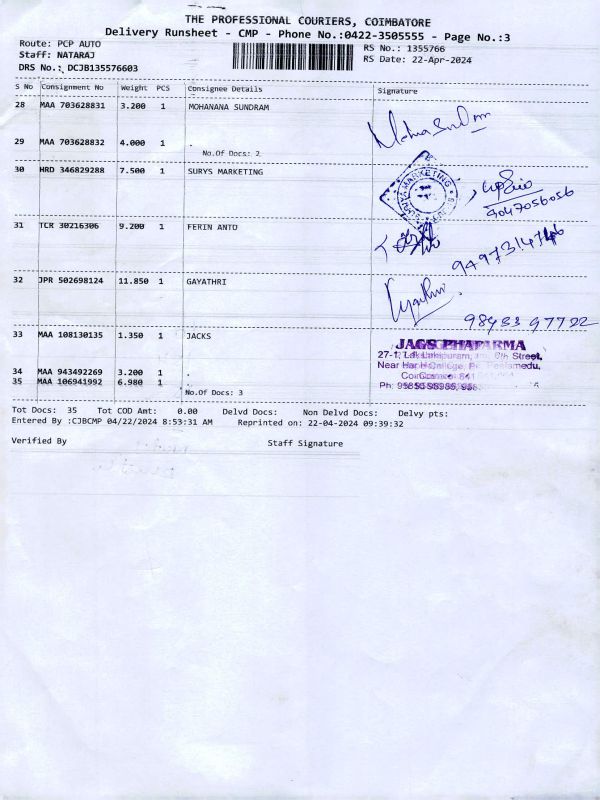 THE PROFESSIONAL COURIERS, COIMBATORE
Delivery Runsheet - CMP - Phone No.:0422-3505555 - Page No.:3
Route: PCP AUTO
RS No.: 1355766
Staff: NATARAJ
RS Date: 22-Apr-2024
DRS No.: DCJB135576603
S No Consignment No Weight PCS Consignee Details Signature
28 MAA 703628831 3.200 1 MOHANANA SUNDRAM
Moha Sundram
29 MAA 703628832 4.000 1 .
No.Of Docs: 2
30 HRD 346829288 7.500 1 SURYS MARKETING
MARKETING
9047056056
31 TCR 30216306 9.200 1 FERIN ANTO
32 JPR 502698124 11.850 1 GAYATHRI
Gayathri
33 MAA 108130135 1.350 1 JACKS
JAGS PHARMA
Street,
34 MAA 943492269 3.200 1 .
35 MAA 106941992 6.980 1
No.Of Docs: 3
Tot Docs: 35 Tot COD Amt: 0.00 Delvd Docs: Non Delvd Docs: Delvy pts:
Entered By :CJBCMP 04/22/2024 8:53:31 AM Reprinted on: 22-04-2024 09:39:32
Verified By Staff Signature